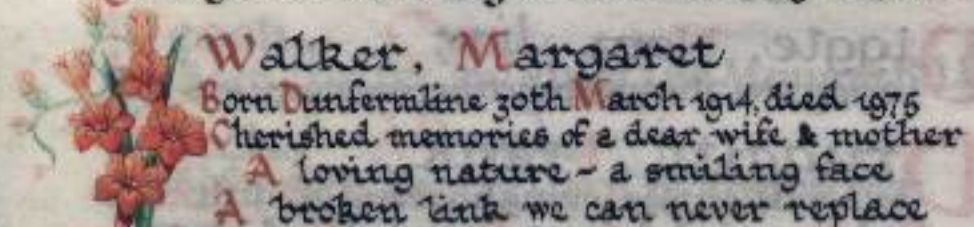 Walker, Margaret
Born Dunfermline 30th March 1914, died 1975
Cherished memories of a dear wife & mother
A loving nature - a smiling face
A broken link we can never replace